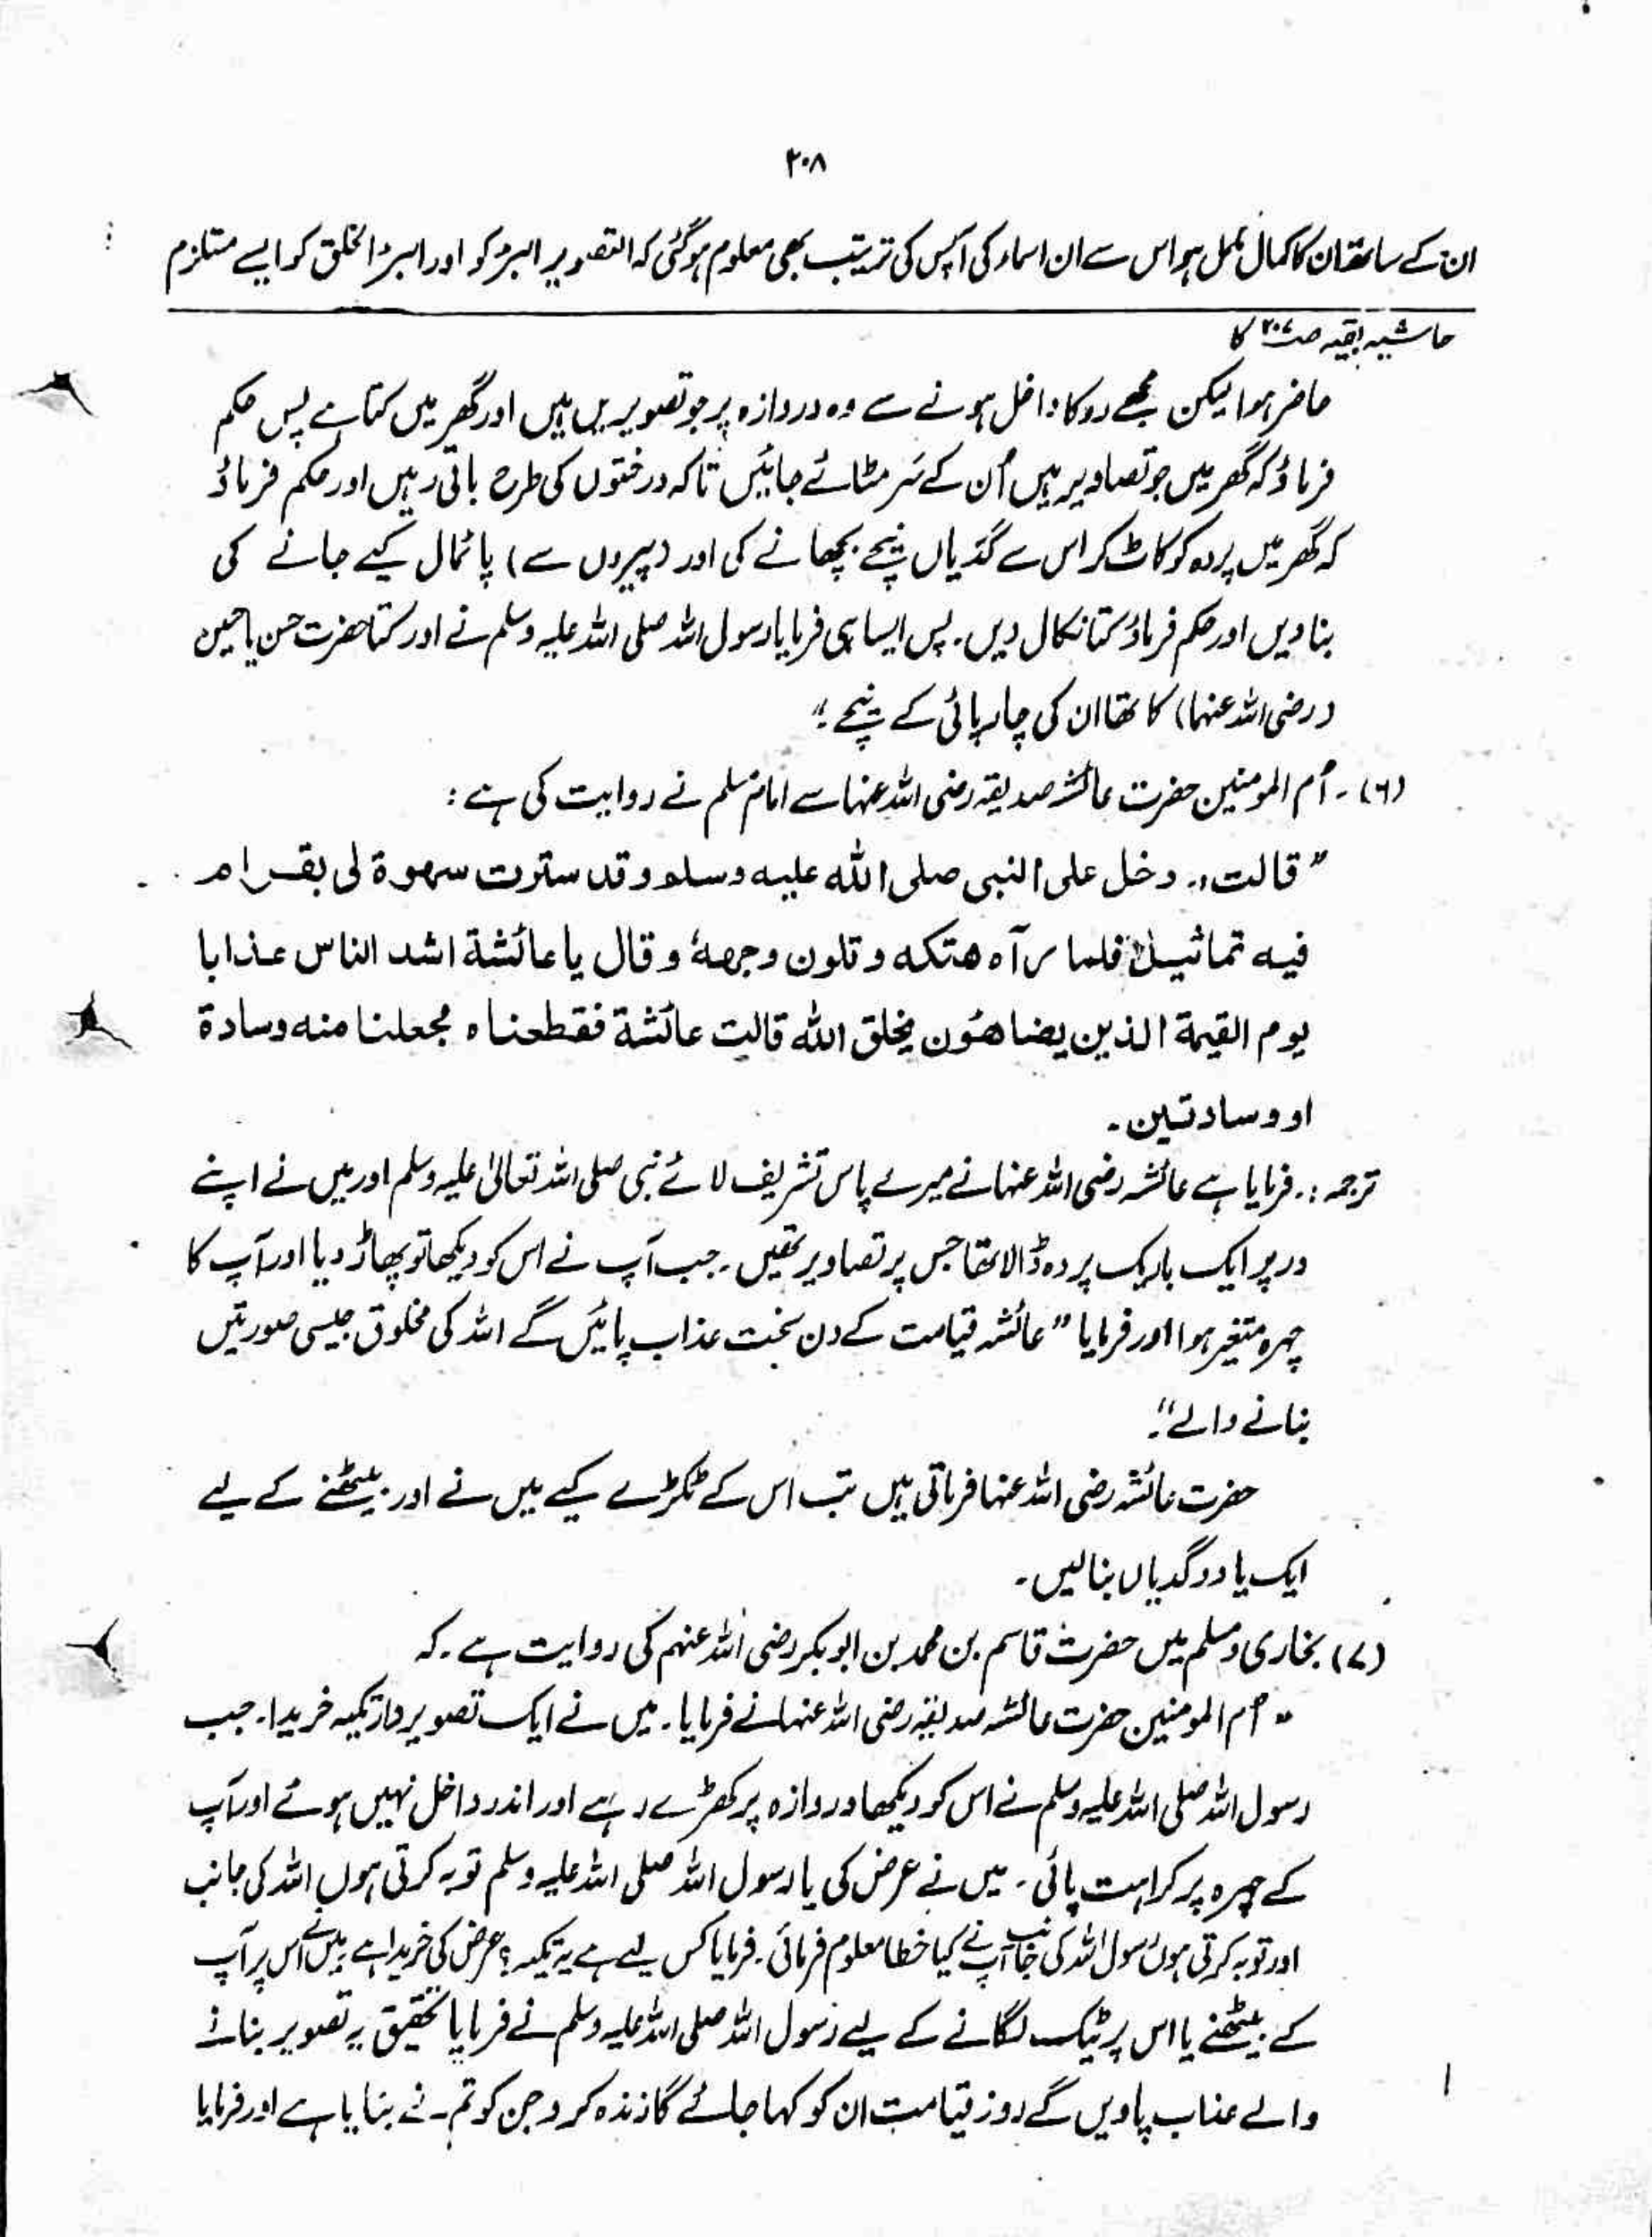 ۲۰۸
ان کے ساتھ ان کا کمال عمل ہو اس سے ان اسماء کی آپس کی ترتیب بھی معلوم ہوگئی کہ التصویر البرء کو اور البرء الخلق کو ایسے مستلزم
حاشیہ بقیہ صـ۲۰۷ کا
حاضر ہوا لیکن مجھے روکا داخل ہونے سے وہ دروازہ پر جو تصویریں ہیں اور گھر میں کتا ہے پس حکم
فرماؤ کہ گھر میں جو تصاویر ہیں اُن کے سَر مٹائے جائیں تاکہ درختوں کی طرح باقی رہیں اور حکم فرماؤ
کہ گھر میں پردہ کو کاٹ کر اس سے گدّیاں نیچے بچھانے کی اور (پیروں سے) پائمال کیے جانے کی
بنا دیں اور حکم فرماؤ کتا نکال دیں۔ پس ایسا ہی فرمایا رسول اللہ صلی اللہ علیہ وسلم نے اور کتا حضرت حسن یا حسین
(رضی اللہ عنہما) کا تھا ان کی چارپائی کے نیچے"۔
(۶)۔ اُم المومنین حضرت عائشہ صدیقہ رضی اللہ عنہا سے امام مسلم نے روایت کی ہے :
" قالت:۔ دخل علی النبی صلی اللہ علیہ وسلم وقد سترت سهوة لی بقرام
فیه تماثیل فلما رآه هتکه وتلون وجههٗ وقال یا عائشة اشد الناس عذابا
یوم القیمة الذین یضاهئون بخلق اللہ قالت عائشة فقطعناه فجعلنا منه وسادة
او وسادتین۔
ترجمہ :۔ فرمایا ہے عائشہ رضی اللہ عنہا نے میرے پاس تشریف لائے نبی صلی اللہ تعالیٰ علیہ وسلم اور میں نے اپنے
در پر ایک باریک پردہ ڈالا تھا جس پر تصاویر تھیں۔ جب آپ نے اس کو دیکھا تو پھاڑ دیا اور آپ کا
چہرہ متغیر ہوا اور فرمایا " عائشہ قیامت کے دن سخت عذاب پائیں گے اللہ کی مخلوق جیسی صورتیں
بنانے والے"۔
حضرت عائشہ رضی اللہ عنہا فرماتی ہیں تب اس کے ٹکڑے کیے میں نے اور بیٹھنے کے لیے
ایک یا دو گدیاں بنا لیں۔
(۷) بخاری و مسلم میں حضرت قاسم بن محمد بن ابوبکر رضی اللہ عنہم کی روایت ہے۔ کہ
" اُم المومنین حضرت عائشہ صدیقہ رضی اللہ عنہا نے فرمایا۔ میں نے ایک تصویر دار تکیہ خریدا۔ جب
رسول اللہ صلی اللہ علیہ وسلم نے اس کو دیکھا دروازہ پر کھڑے رہے اور اندر داخل نہیں ہوئے اور آپ
کے چہرہ پر کراہت پائی۔ میں نے عرض کی یا رسول اللہ صلی اللہ علیہ وسلم توبہ کرتی ہوں اللہ کی جانب
اور توبہ کرتی ہوں رسول اللہ کی جانب آپ نے کیا خطا معلوم فرمائی۔ فرمایا کس لیے ہے یہ تکیہ؟ عرض کی خریدا ہے میں نے اس پر آپ
کے بیٹھنے یا اس پر ٹیک لگانے کے لیے رسول اللہ صلی اللہ علیہ وسلم نے فرمایا تحقیق یہ تصویر بنانے
والے عذاب پاویں گے روز قیامت ان کو کہا جائے گا زندہ کرو جن کو تم نے بنایا ہے اور فرمایا